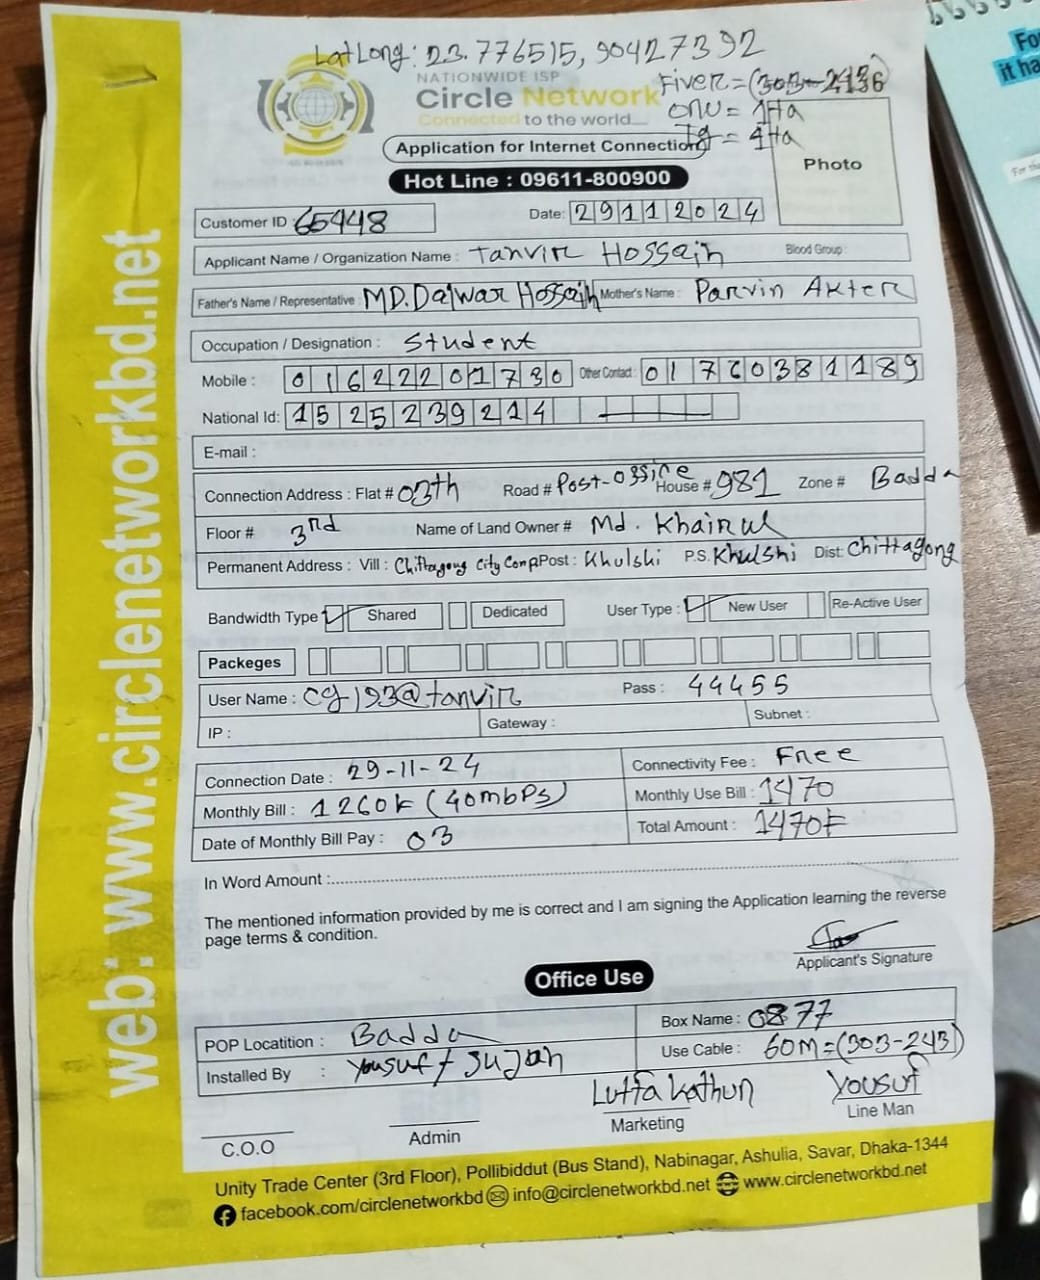 LatLong: 23.776515, 90427392
NATIONWIDE ISP
Circle Network
Connected to the world....
FiveR = (303-2436
ONU = 1Ta
Tg = 1Ta
Application for Internet Connection
Photo
Hot Line : 09611-800900
Customer ID 65448 Date: 29112024
Applicant Name / Organization Name : Tanvir Hossain Blood Group :
Father's Name / Representative : MD. Dalwar Hossain Mother's Name : Parvin Akter
Occupation / Designation : Student
Mobile : 01622201730 Other Contact : 01760381189
National Id: 1525239214
E-mail :
Connection Address : Flat # 03th Road # Post-office House # 981 Zone # Badda
Floor # 3rd Name of Land Owner # Md. Khairul
Permanent Address : Vill : Chittagong City Corp Post : Khulshi P.S. Khulshi Dist: Chittagong
Bandwidth Type Shared Dedicated User Type : New User Re-Active User
Packeges
User Name : cg193@tanvir Pass : 44455
IP : Gateway : Subnet :
Connection Date : 29-11-24 Connectivity Fee : Free
Monthly Bill : 1260৳ (40mbps) Monthly Use Bill : 1470
Date of Monthly Bill Pay : 03 Total Amount : 1470৳
In Word Amount :
The mentioned information provided by me is correct and I am signing the Application learning the reverse
page terms & condition.
Applicant's Signature
Office Use
POP Locatition : Badda Box Name : 0877
Installed By : Yousuf + Sujan Use Cable : 60M=(303-243)
Lutfa Kathun Yousuf
C.O.O Admin Marketing Line Man
Unity Trade Center (3rd Floor), Pollibiddut (Bus Stand), Nabinagar, Ashulia, Savar, Dhaka-1344
facebook.com/circlenetworkbd info@circlenetworkbd.net www.circlenetworkbd.net
web: www.circlenetworkbd.net
Fo
it ha
For the